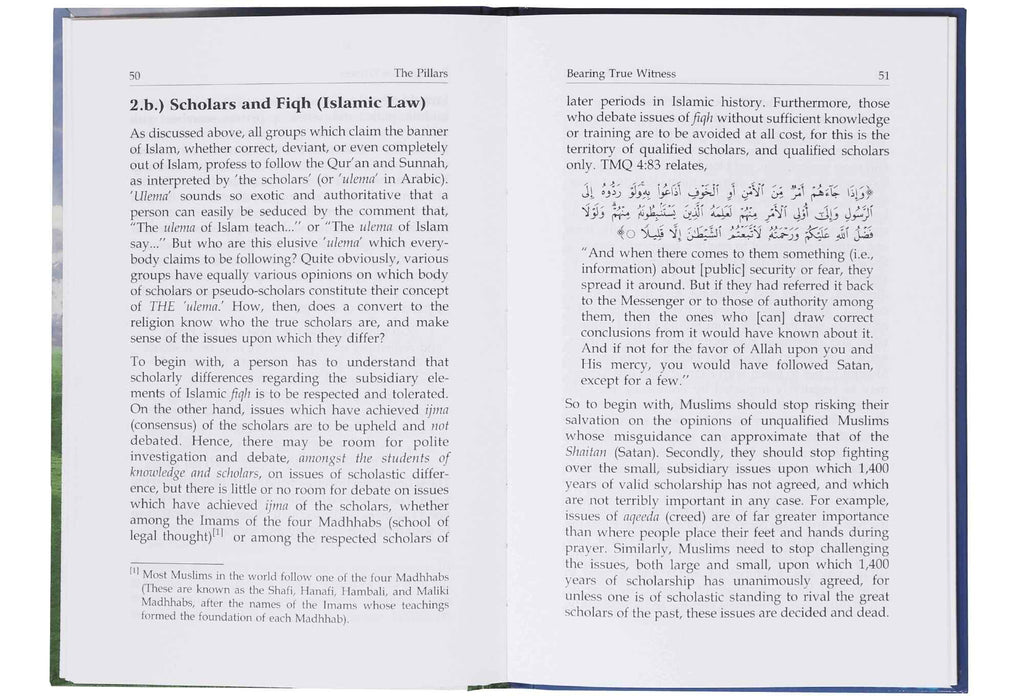 50
The Pillars
2.b.) Scholars and Fiqh (Islamic Law)
As discussed above, all groups which claim the banner
of Islam, whether correct, deviant, or even completely
out of Islam, profess to follow the Qur'an and Sunnah,
as interpreted by 'the scholars' (or 'ulema' in Arabic).
'Ulema' sounds so exotic and authoritative that a
person can easily be seduced by the comment that,
"The ulema of Islam teach..." or "The ulema of Islam
say..." But who are this elusive 'ulema' which every-
body claims to be following? Quite obviously, various
groups have equally various opinions on which body
of scholars or pseudo-scholars constitute their concept
of THE 'ulema.' How, then, does a convert to the
religion know who the true scholars are, and make
sense of the issues upon which they differ?
To begin with, a person has to understand that
scholarly differences regarding the subsidiary ele-
ments of Islamic fiqh is to be respected and tolerated.
On the other hand, issues which have achieved ijma
(consensus) of the scholars are to be upheld and not
debated. Hence, there may be room for polite
investigation and debate, amongst the students of
knowledge and scholars, on issues of scholastic differ-
ence, but there is little or no room for debate on issues
which have achieved ijma of the scholars, whether
among the Imams of the four Madhhabs (school of
legal thought)[1] or among the respected scholars of
[1] Most Muslims in the world follow one of the four Madhhabs
(These are known as the Shafi, Hanafi, Hambali, and Maliki
Madhhabs, after the names of the Imams whose teachings
formed the foundation of each Madhhab).
Bearing True Witness
51
later periods in Islamic history. Furthermore, those
who debate issues of fiqh without sufficient knowledge
or training are to be avoided at all cost, for this is the
territory of qualified scholars, and qualified scholars
only. TMQ 4:83 relates,
﴿وَإِذَا جَاءَهُمْ أَمْرٌ مِّنَ ٱلْأَمْنِ أَوِ ٱلْخَوْفِ أَذَاعُوا۟ بِهِۦ وَلَوْ رَدُّوهُ إِلَى
ٱلرَّسُولِ وَإِلَىٰٓ أُو۟لِى ٱلْأَمْرِ مِنْهُمْ لَعَلِمَهُ ٱلَّذِينَ يَسْتَنۢبِطُونَهُۥ مِنْهُمْ وَلَوْلَا
فَضْلُ ٱللَّهِ عَلَيْكُمْ وَرَحْمَتُهُۥ لَٱتَّبَعْتُمُ ٱلشَّيْطَـٰنَ إِلَّا قَلِيلًا ○﴾
"And when there comes to them something (i.e.,
information) about [public] security or fear, they
spread it around. But if they had referred it back
to the Messenger or to those of authority among
them, then the ones who [can] draw correct
conclusions from it would have known about it.
And if not for the favor of Allah upon you and
His mercy, you would have followed Satan,
except for a few."
So to begin with, Muslims should stop risking their
salvation on the opinions of unqualified Muslims
whose misguidance can approximate that of the
Shaitan (Satan). Secondly, they should stop fighting
over the small, subsidiary issues upon which 1,400
years of valid scholarship has not agreed, and which
are not terribly important in any case. For example,
issues of aqeeda (creed) are of far greater importance
than where people place their feet and hands during
prayer. Similarly, Muslims need to stop challenging
the issues, both large and small, upon which 1,400
years of scholarship has unanimously agreed, for
unless one is of scholastic standing to rival the great
scholars of the past, these issues are decided and dead.